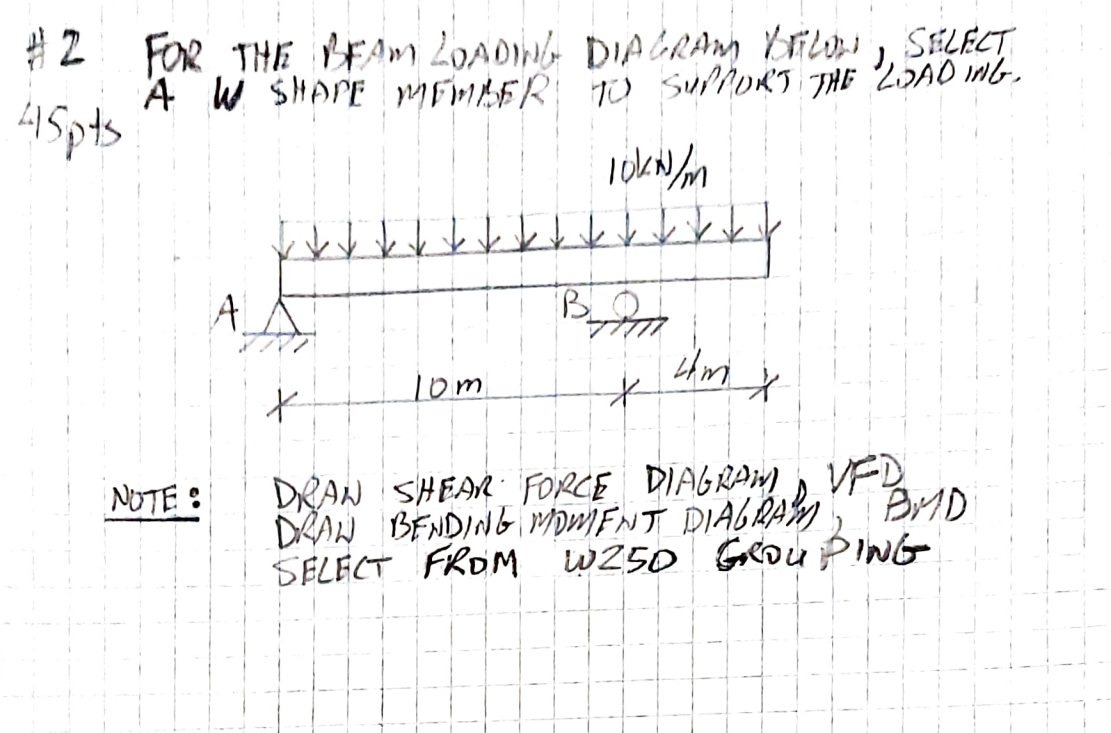 #2 FOR THE BEAM LOADING DIAGRAM BELOW, SELECT
A W SHAPE MEMBER TO SUPPORT THE LOADING.
45pts
10kN/m
A
B
10m
4m
NOTE: DRAW SHEAR FORCE DIAGRAM, VFD
DRAW BENDING MOMENT DIAGRAM, BMD
SELECT FROM W250 GROUPING